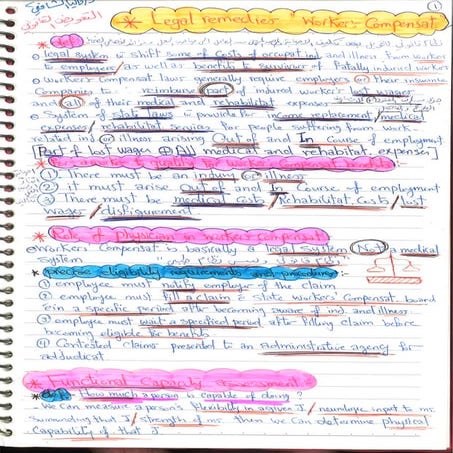 ①
* Legal remedies - Worker's Compensat.
* def.
⊙ legal system to shift some of costs of occupat. ind and illness from worker
to employers / as well as benefits to survivor of Fatally injured worker
⊙ workers Compensat laws generally require employers or their insurance
Companies to reimburse part of injured worker's lost wages
and all of their medical and rehabilitat. expenses
⊙ System of state laws to provide for income replacement / medical
expenses / rehabilitat. services for people suffering from work-
related inj or illness arising Out of and In course of employment
[Part of lost wage ⊕ All medical and rehabilitat. expenses]
* For a worker to qualify for worker's Compensat
① There must be an injury or illness
② it must arise Out of and In Course of employment
③ There must be medical Costs / Rehabilitat. Costs / lost
wages / disfigurement
* Role of physician in worker's Compensat
⊙ workers Compensat is basically a legal system Not a medical
system
* precise eligibility requirements and procedures :-
① employee must notify employer of the claim
② employee must fill a claim to state workers' Compensat. board
in a specific period after becoming aware of inj. and illness
③ employee must wait a specified period after filling claim before
becoming eligible for benefits
④ Contested claims presented to an administrative agency for
adjudicat
* Functional Capacity assessment
* def. How much a person is capable of doing ?
We can measure a person's flexibility in a given J. / neurologic input to ms.
Surrounding that J / strength of ms then we can determine physical
Capability of that J